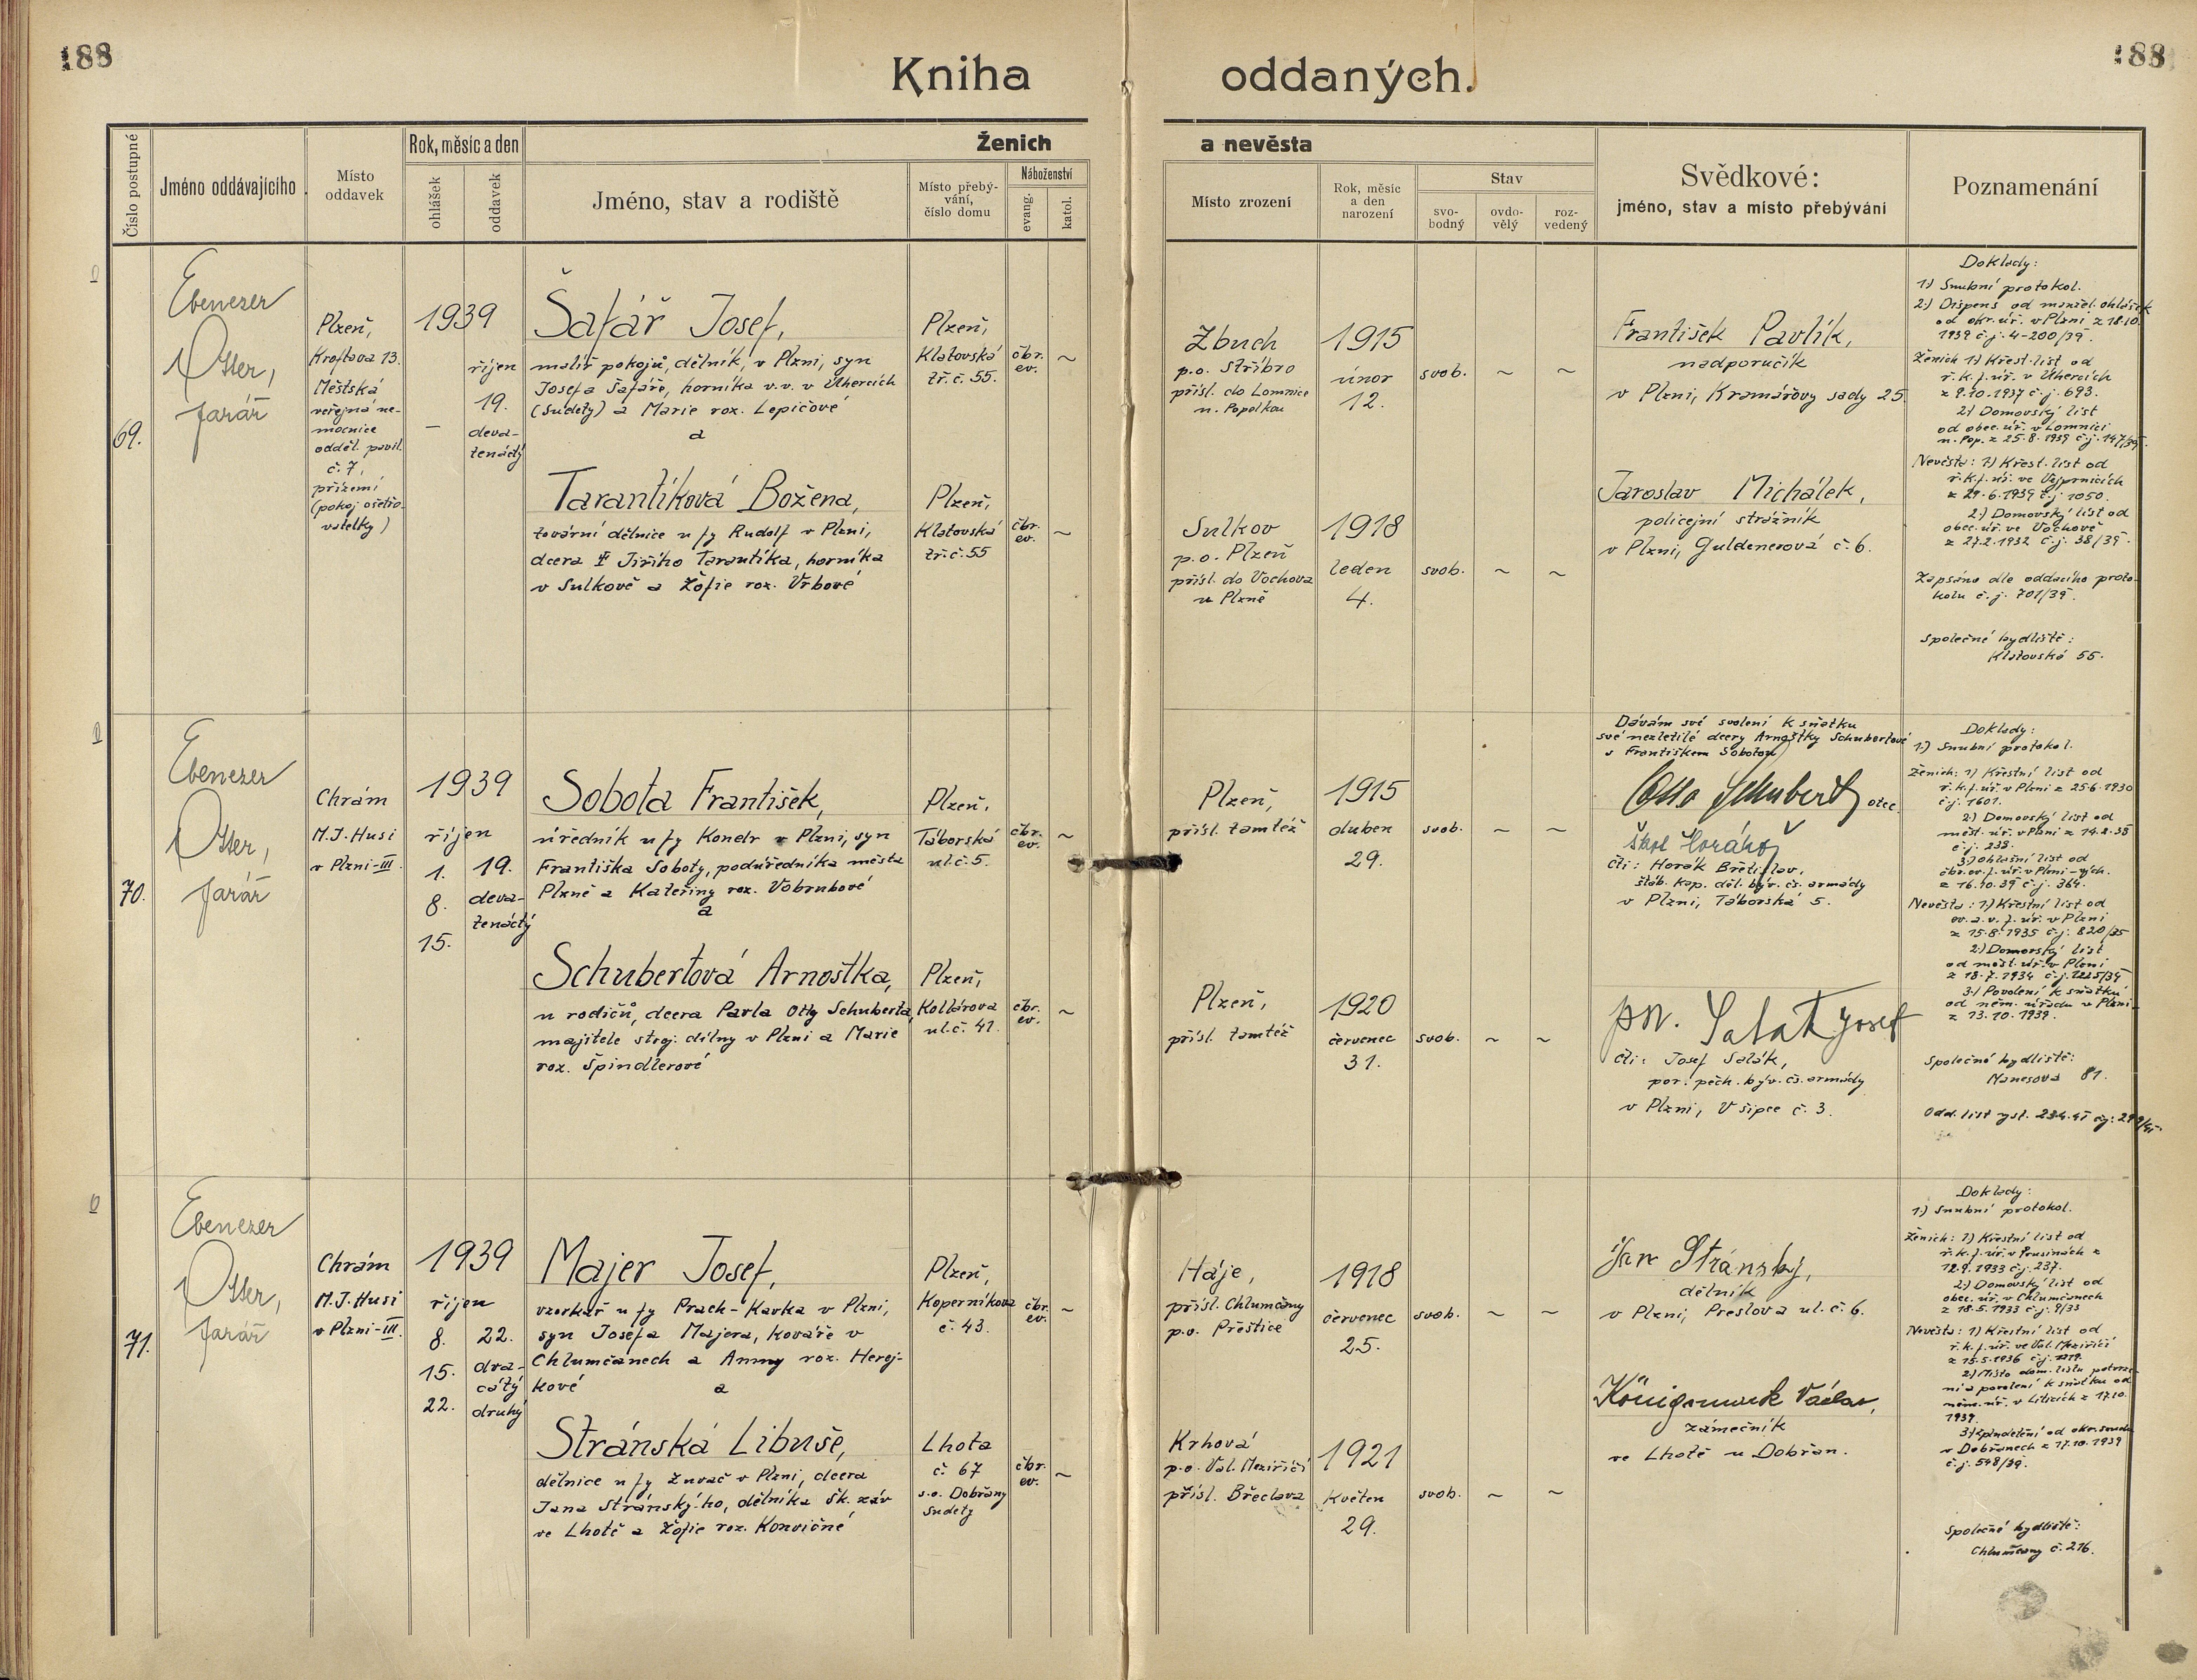 188
188
Kniha oddaných.
Číslo postupné
Jméno oddávajícího
Místo oddavek
Rok, měsíc a den
ohlášek
oddavek
Ženich a nevěsta
Jméno, stav a rodiště
Místo přebývání, číslo domu
Náboženství
evang.
katol.
Místo zrození
Rok, měsíc a den narození
Stav
svobodný
ovdovělý
rozvedený
Svědkové:
jméno, stav a místo přebývání
Poznamenání
69.
Ebenezer
Otter,
farář
Plzeň,
Kroftova 13.
Městská
veřejná ne-
mocnice
odděl. pavil.
č. 7,
přízemí
(pokoj ošetřo-
vatelky)
1939
–
říjen
19.
deva-
tenáctý
Šafář Josef,
malíř pokojů, dělník, v Plzni, syn
Josefa Šafáře, horníka v.v. v Úhercích
(Sudety) a Marie roz. Lepičové
a
Plzeň,
Klatovská
tř. č. 55.
čbr.
ev.
~
Zbuch
p.o. Stříbro
přísl. do Lomnice
n. Popelkou
1915
únor
12.
svob.
~
~
František Pavlík,
nadporučík
v Plzni, Kramářovy sady 25.
Tarantíková Božena,
tovární dělnice u fy Rudolf v Plzni,
dcera † Jiřího Tarantíka, horníka
v Sulkově a Žofie roz. Vrbové
Plzeň,
Klatovská
tř. č. 55
čbr.
ev.
~
Sulkov
p.o. Plzeň
přísl. do Vochova
u Plzně
1918
leden
4.
svob.
~
~
Jaroslav Michálek,
policejní strážník
v Plzni, Guldenerová č. 6.
Doklady:
1) Snubní protokol.
2) Dispens od manžel. ohlášek
od okr. úř. v Plzni z 18.10.
1939 č.j. 4-200/39.
Ženich 1) Křest. list od
ř.k.f. úř. v Úhercích
z 9.10.1937 č.j. 693.
2) Domovský list
od obec. úř. v Lomnici
n. Pop. z 25.8.1939 č.j. 147/39.
Nevěsta: 1) Křest. list od
ř.k.f. úř. ve Vejprnicích
z 29.6.1939 č.j. 1050.
2) Domovský list od
obec. úř. ve Vochově
z 27.2.1932 č.j. 38/39.
Zapsáno dle oddacího proto-
kolu č.j. 701/39.
Společné bydliště:
Klatovská 55.
70.
Ebenezer
Otter,
farář
Chrám
M.J. Husi
v Plzni-III
1939
říjen
1.
8.
15.
19.
deva-
tenáctý
Sobota František,
úředník u fy Konelr v Plzni, syn
Františka Soboty, podúředníka města
Plzně a Kateřiny roz. Vobrubové
a
Plzeň,
Táborská
ul. č. 5.
čbr.
ev.
~
Plzeň,
přísl. tamtéž
1915
duben
29.
svob.
~
~
Dávám své svolení k sňatku
své nezletilé dcery Arnoštky Schubertové
s Františkem Sobotou
Otto Schubert otec
čti: Horák Břetislav,
štáb. kap. děl. býv. čs. armády
v Plzni, Táborská 5.
Schubertová Arnoštka,
u rodičů, dcera Pavla Otty Schuberta,
majitele stroj. dílny v Plzni a Marie
roz. Špindlerové
Plzeň,
Kollárova
ul. č. 41.
čbr.
ev.
~
Plzeň,
přísl. tamtéž
1920
červenec
31.
svob.
~
~
por. Salák Josef
čti: Josef Salák,
por. pěch. býv. čs. armády
v Plzni, V šipce č. 3.
Doklady:
1) Snubní protokol.
Ženich: 1) Křestní list od
ř.k.f. úř. v Plzni z 25.6.1930
č.j. 1601.
2) Domovský list od
měst. úř. v Plzni z 14.2.38
č.j. 238.
3) ohlašní list od
čbr. ev. f. úř. v Plzni-vých.
z 16.10.39 č.j. 364.
Nevěsta: 1) Křestní list od
ev. a.v. f. úř. v Plzni
z 15.8.1935 č.j. 820/35
2) Domovský list
od měst. úř. v Plzni
z 18.7.1934
3) Povolení k sňatku
od něm. úřadu v Plzni
z 13.10.1939.
Společné bydliště:
Manesova 81.
Odd. list vyst.
71.
Ebenezer
Otter,
farář
Chrám
M.J. Husi
v Plzni-III.
1939
říjen
8.
15.
22.
22.
dva-
cátý
druhý
Majer Josef,
vzorkář u fy Prach-Kavka v Plzni,
syn Josefa Majera, kováře v
Chlumčanech a Anny roz. Herej-
kové
a
Plzeň,
Koperníkova
č. 43.
čbr.
ev.
~
Háje,
přísl. Chlumčany
p.o. Přeštice
1918
červenec
25.
svob.
~
~
Jan Stránský,
dělník
v Plzni, Preslova ul. č. 6.
Stránská Libuše,
dělnice u fy Žnvač v Plzni, dcera
Jana Stránského, dělníka Šk. záv
ve Lhotě a Žofie roz. Konvičné
Lhota
č. 67
s.o. Dobřany
Sudety
čbr.
ev.
~
Krhová
p.o. Val. Meziříčí
přísl. Břeclava
1921
květen
29.
svob.
~
~
Königsmark Václav,
zámečník
ve Lhotě u Dobřan.
Doklady:
1) Snubní protokol.
Ženich: 1) Křestní list od
ř.k.f. úř. v Prusinách z
12.9.1933 č.j. 237.
2) Domovský list od
obec. úř. v Chlumčanech
z 18.5.1933 č.j. 9/33
Nevěsta: 1) Křestní list od
ř.k.f. úř. ve Val. Meziříčí
z 15.5.1936
2) Místo dom. listu potvrze-
ní a povolení k sňatku od
něm. úř. v Liticích z 17.10.
1939.
od okr. soudu
v Dobřanech z 17.10.1939
č.j. 548/39.
Společné bydliště:
Chlumčany č. 216.